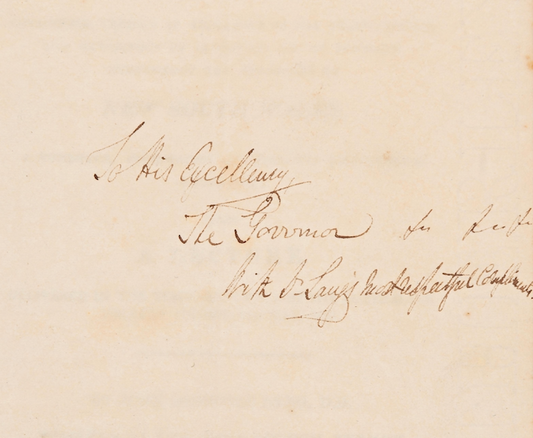 To His Excellency,
The Governor
With Dr Lang's most respectful Compliments